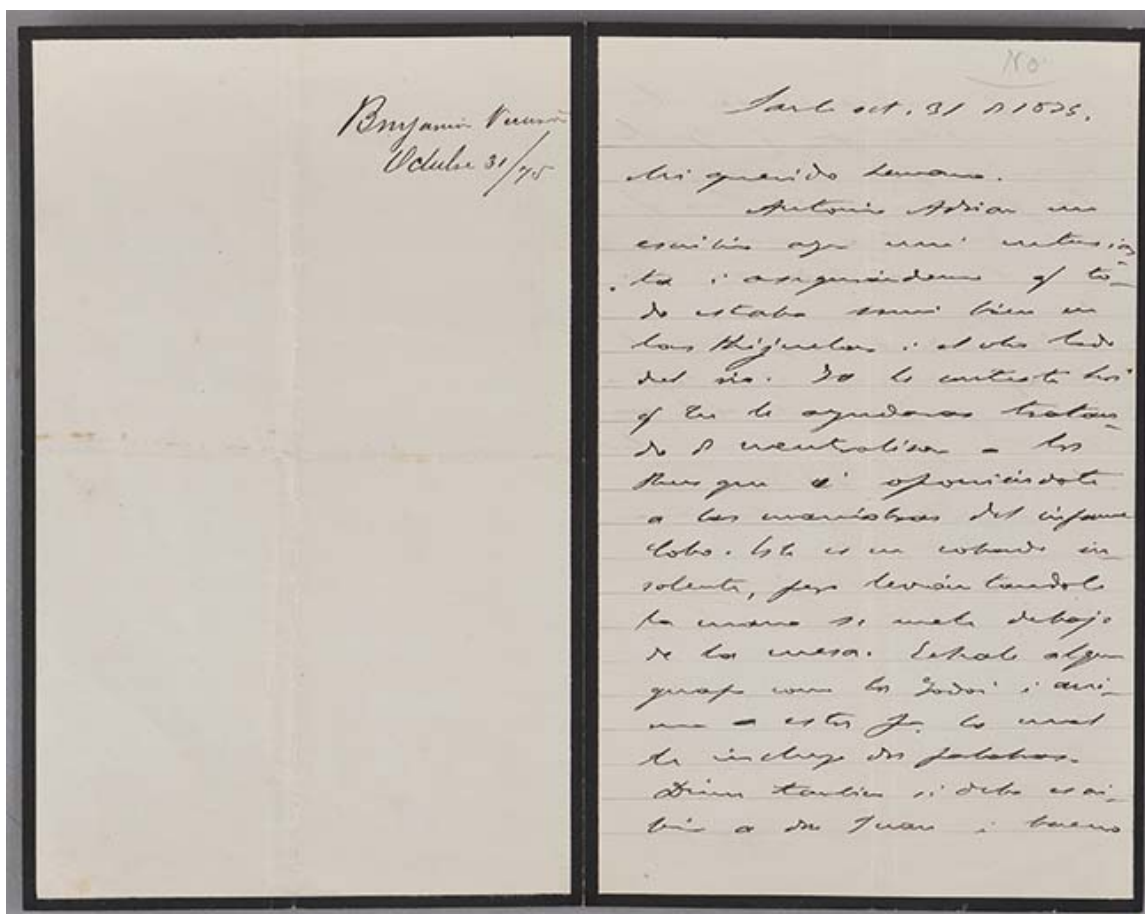 Benjamin Vicuña
Octubre 31/75
No
Sant. oct. 31 d 1875.
Mi querido hermano.
Antonio Adrian me
escribió ayer mui
ta i asegurándome q to-
do estaba mui bien en
las Hijuelas i al otro lado
del rio. Yo le contesté hoi
q tu le ayudaras tratan-
do d neutralisar a los
i oponiéndote
a las maniobras del infame
Lobo. Este es un cobarde in-
solente, pero levantandole
la mano se mete debajo
de la mesa. Echale algun
guapo como los Godoi i aní-
ma a estos pa lo cual
te incluyo dos palabras.
Dime tambien si debo escri-
bir a don Juan i bueno